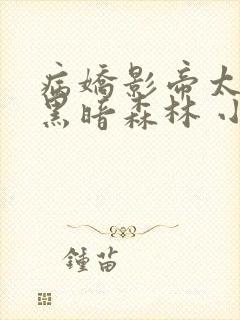 病嬌影帝太
黑暗森林 小
鍾苗